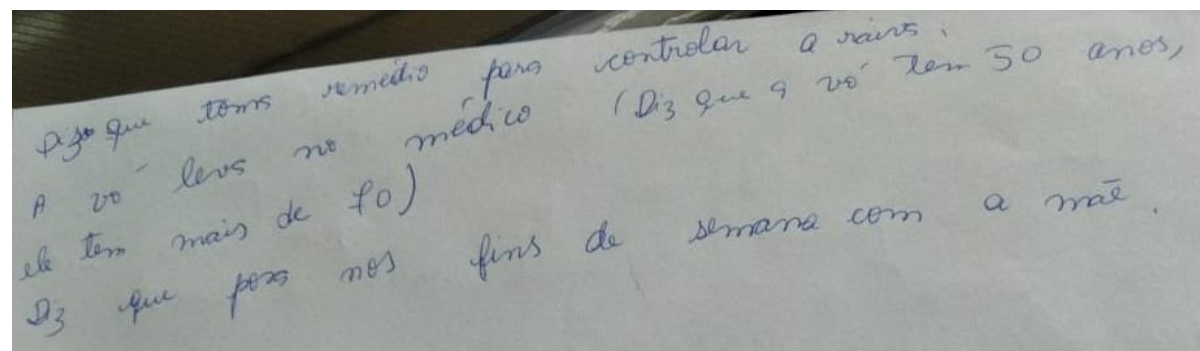 Diz que toma remédio para controlar a raiva.
A vó leva no médico (Diz que a vó tem 50 anos,
ele tem mais de 70)
Diz que nos fins de semana com a mãe.